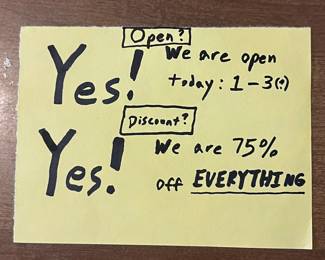 Open?
Yes! We are open
today: 1-3(:)
Discount?
Yes! We are 75%
off EVERYTHING